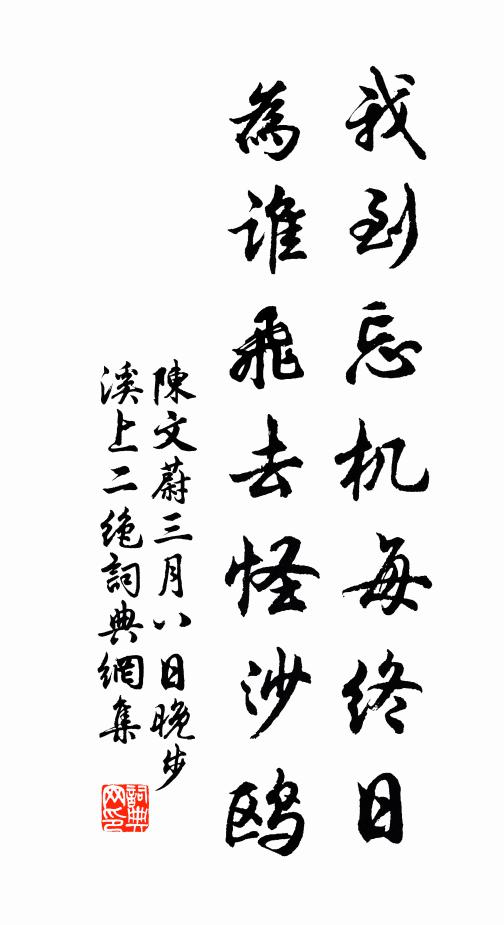 我到忘机每终日
為谁飛去怪沙鸥
陳文蔚三月八日晚步
溪上二绝詞典網集
詞典
网印